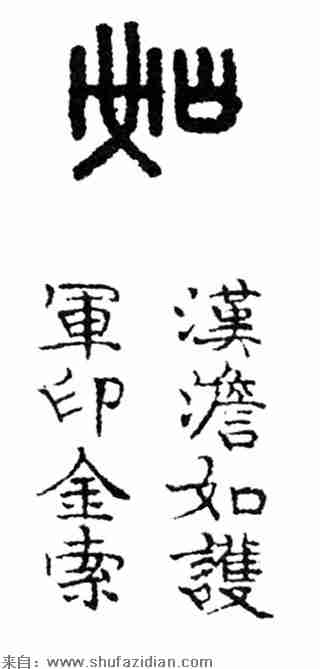 如
漢澹如護
軍印金索
来自:www.shufazidian.com